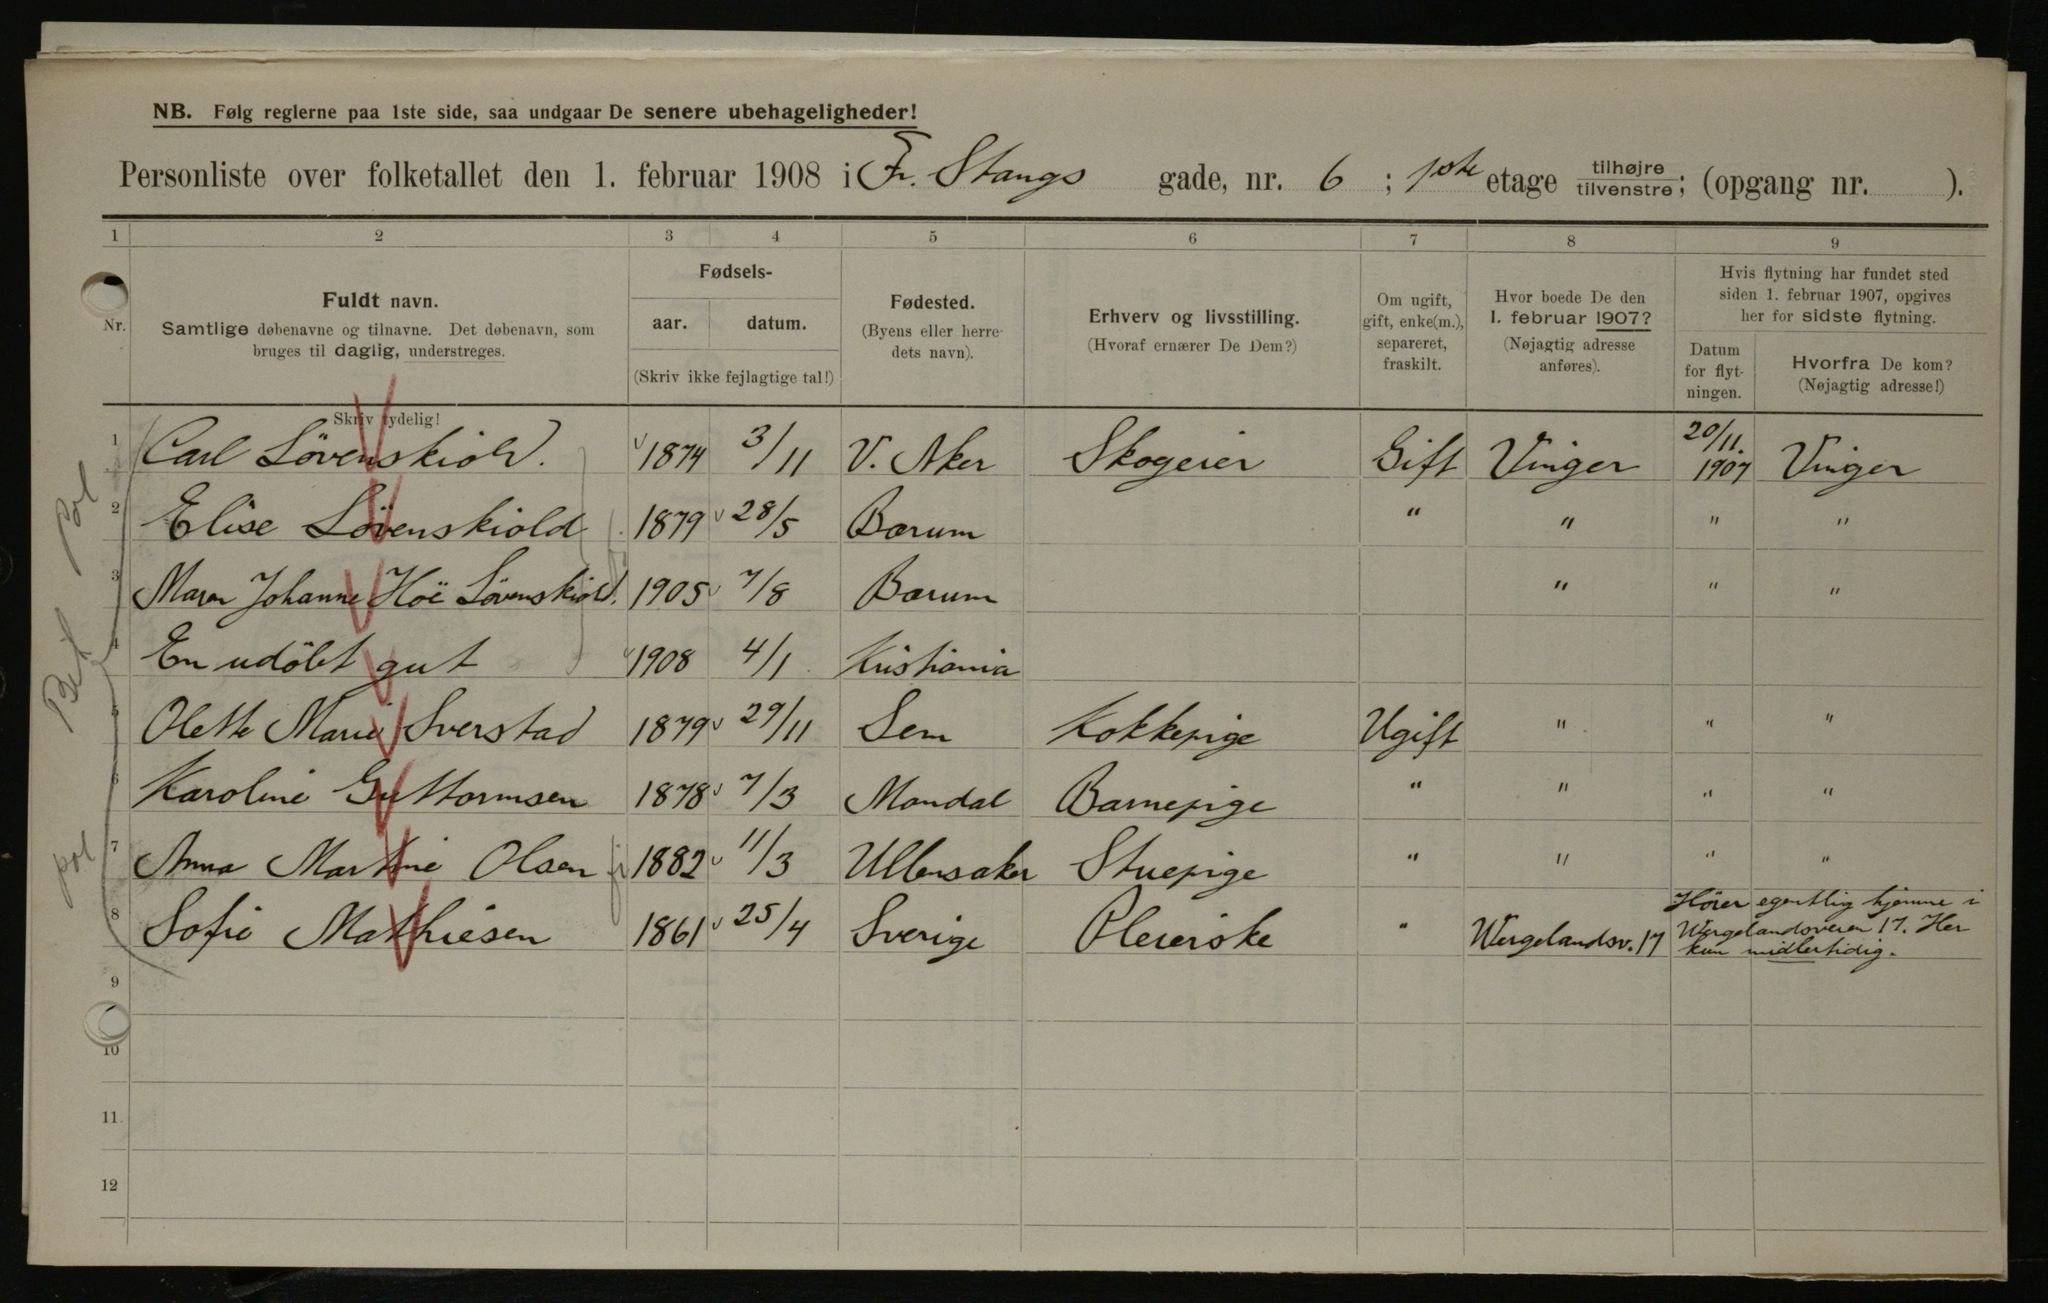 NB. Følg reglerne paa 1ste side, saa undgaar De senere ubehageligheder!
Personliste over folketallet den 1. februar 1908 i Fr. Stangs gade, nr. 6 ; 1ste etage tilhøjre / tilvenstre; (opgang nr. ).
1 2 3 4 5 6 7 8 9
Nr. Fuldt navn. Samtlige døbenavne og tilnavne. Det døbenavn, som bruges til daglig, understreges. Skriv tydelig!
Fødsels- aar. datum. (Skriv ikke fejlagtige tal!)
Fødested. (Byens eller herredets navn).
Erhverv og livsstilling. (Hvoraf ernærer De Dem?)
Om ugift, gift, enke(m.), separeret, fraskilt.
Hvor boede De den 1. februar 1907? (Nøjagtig adresse anføres).
Hvis flytning har fundet sted siden 1. februar 1907, opgives her for sidste flytning.
Datum for flytningen. Hvorfra De kom? (Nøjagtig adresse!)
1 Carl Lövenskiold. 1874 3/11 V. Aker Skogeier Gift Vinger 20/11. 1907 Vinger
2 Elise Løvenskiold 1879 28/5 Bærum " " " "
3 Maren Johanne Höe Lövenskiold. 1905 7/8 Bærum " " "
4 En udöbt gut 1908 4/1 Kristiania
5 Olette Marie Sverstad 1879 29/11 Sem Kokkepige Ugift " " "
6 Karoline Guttormsen 1878 7/3 Mandal Barnepige " " " "
7 Anna Martine Olsen 1882 11/3 Ullensaker Stuepige " " " "
8 Sofie Mathiesen 1861 25/4 Sverige Pleierske " Wergelandsv. 17 Hörer egentlig hjemme i Wergelandsveien 17. Her kun midlertidig.
9
10
11
12